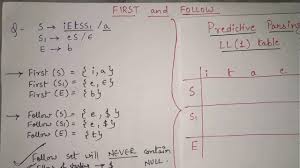 FIRST and FOLLOW
Q- S → iEtSS₁/a
S₁ → eS/ε
E → b
→ First (S) = { i, a }
First (S₁) = { e, ε }
First (E) = { b }
→ Follow (S) = { e, $ }
Follow (S₁) = { e, $ }
Follow (E) = { t }
→ Follow set will NEVER contain
NULL.
Predictive Parsing
LL(1) table.
i t a e
S
S₁
E